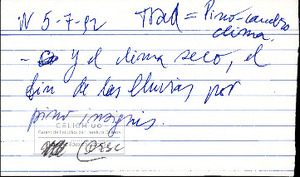 N 5-7-92 Trad = Pino-
clima.
- y el clima seco, el
fin de las lluvias por
pino insignis.
CELICH UC